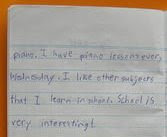 piano. I have piano lessons every
Wednesday. I like other subjects
that I learn in school. School is
very interesting!